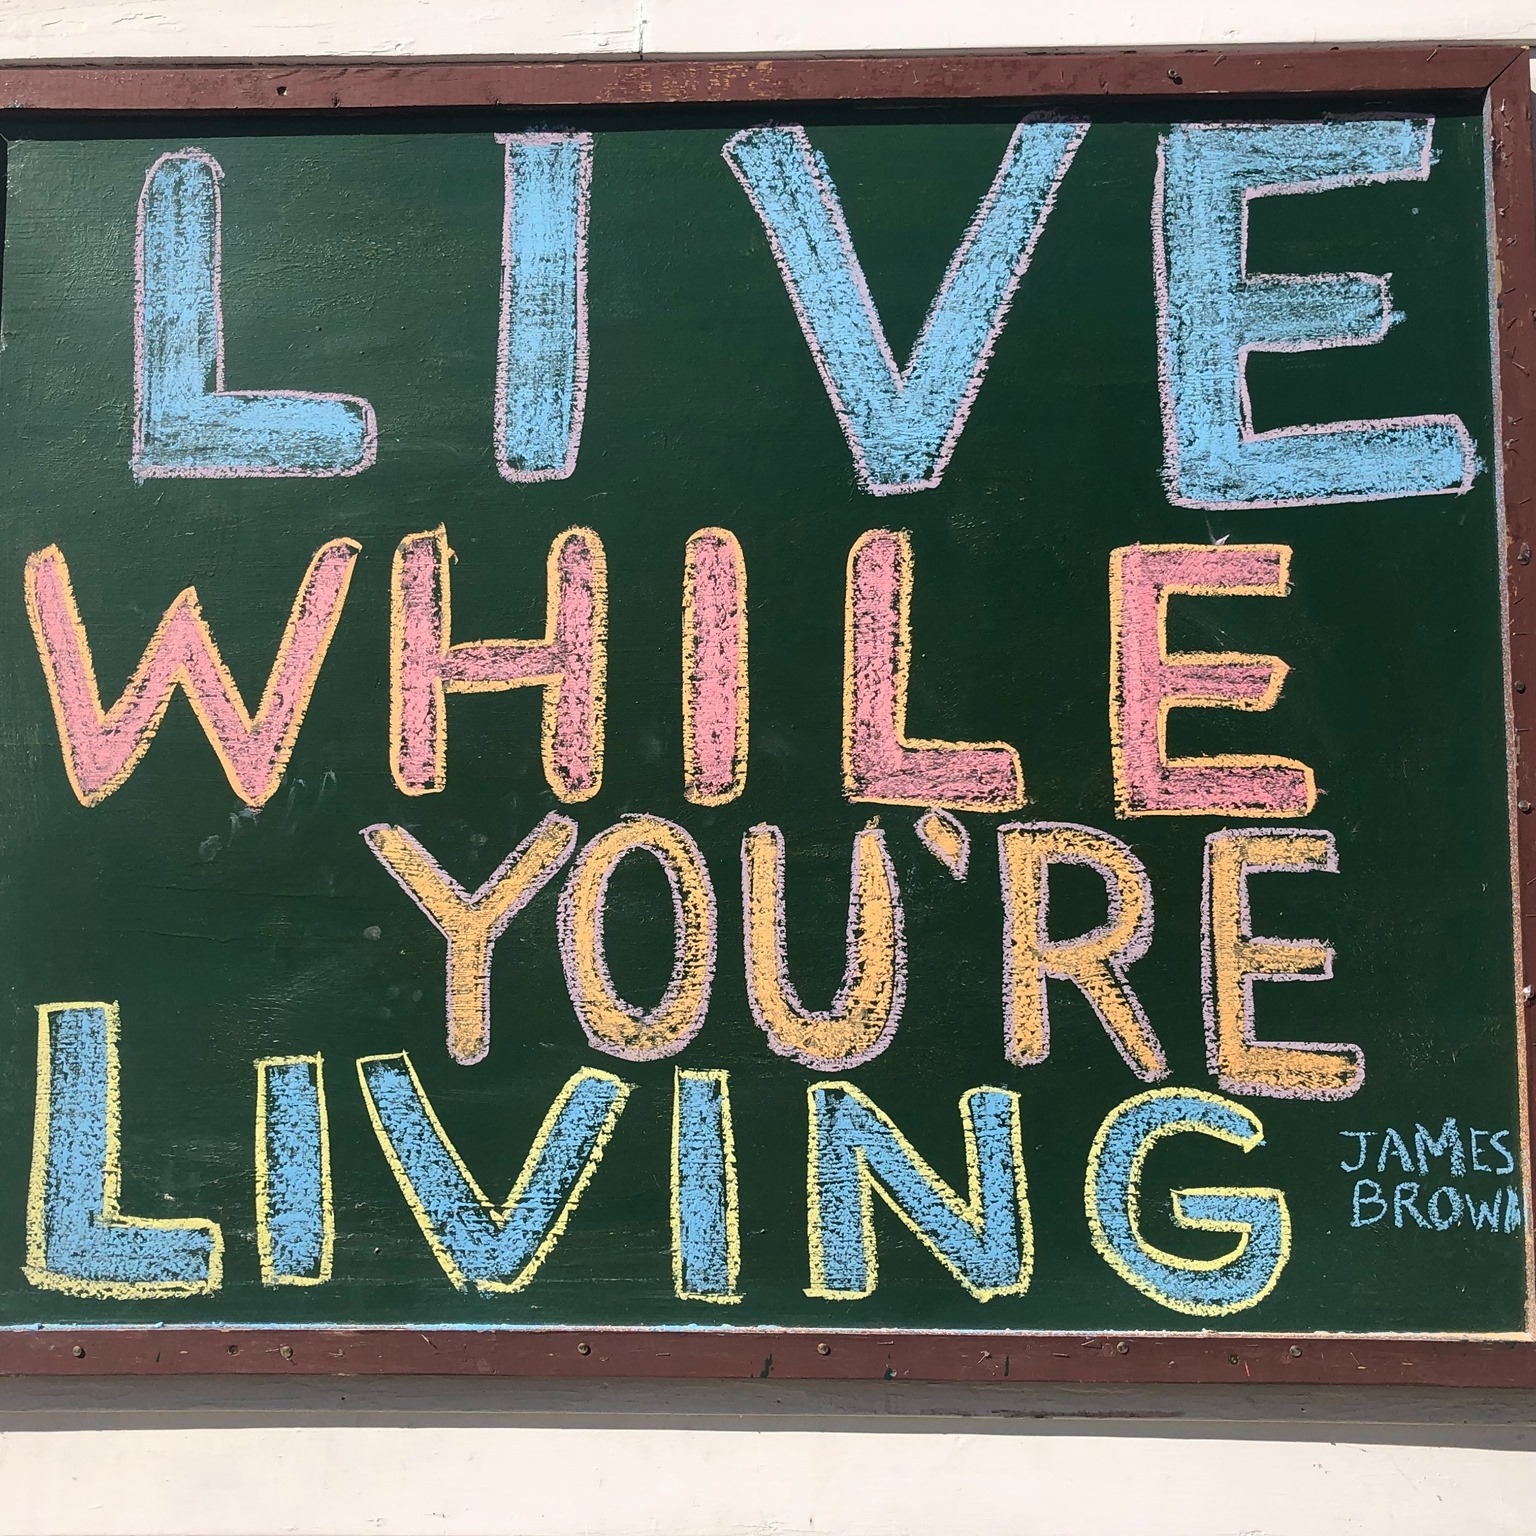 LIVE
WHILE
YOU'RE
LIVING
JAMES
BROWN